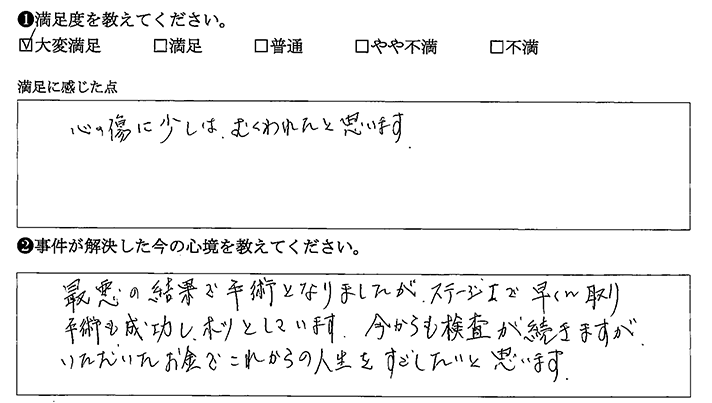 ❶満足度を教えてください。
☑大変満足 □満足 □普通 □やや不満 □不満
満足に感じた点
心の傷に少しは、むくわれたと思います。
❷事件が解決した今の心境を教えてください。
最悪の結果で手術となりましたが、ステージIで早くに取り
手術も成功し、ホッとしています。今からも検査が続きますが、
いただいたお金でこれからの人生をすごしたいと思います。